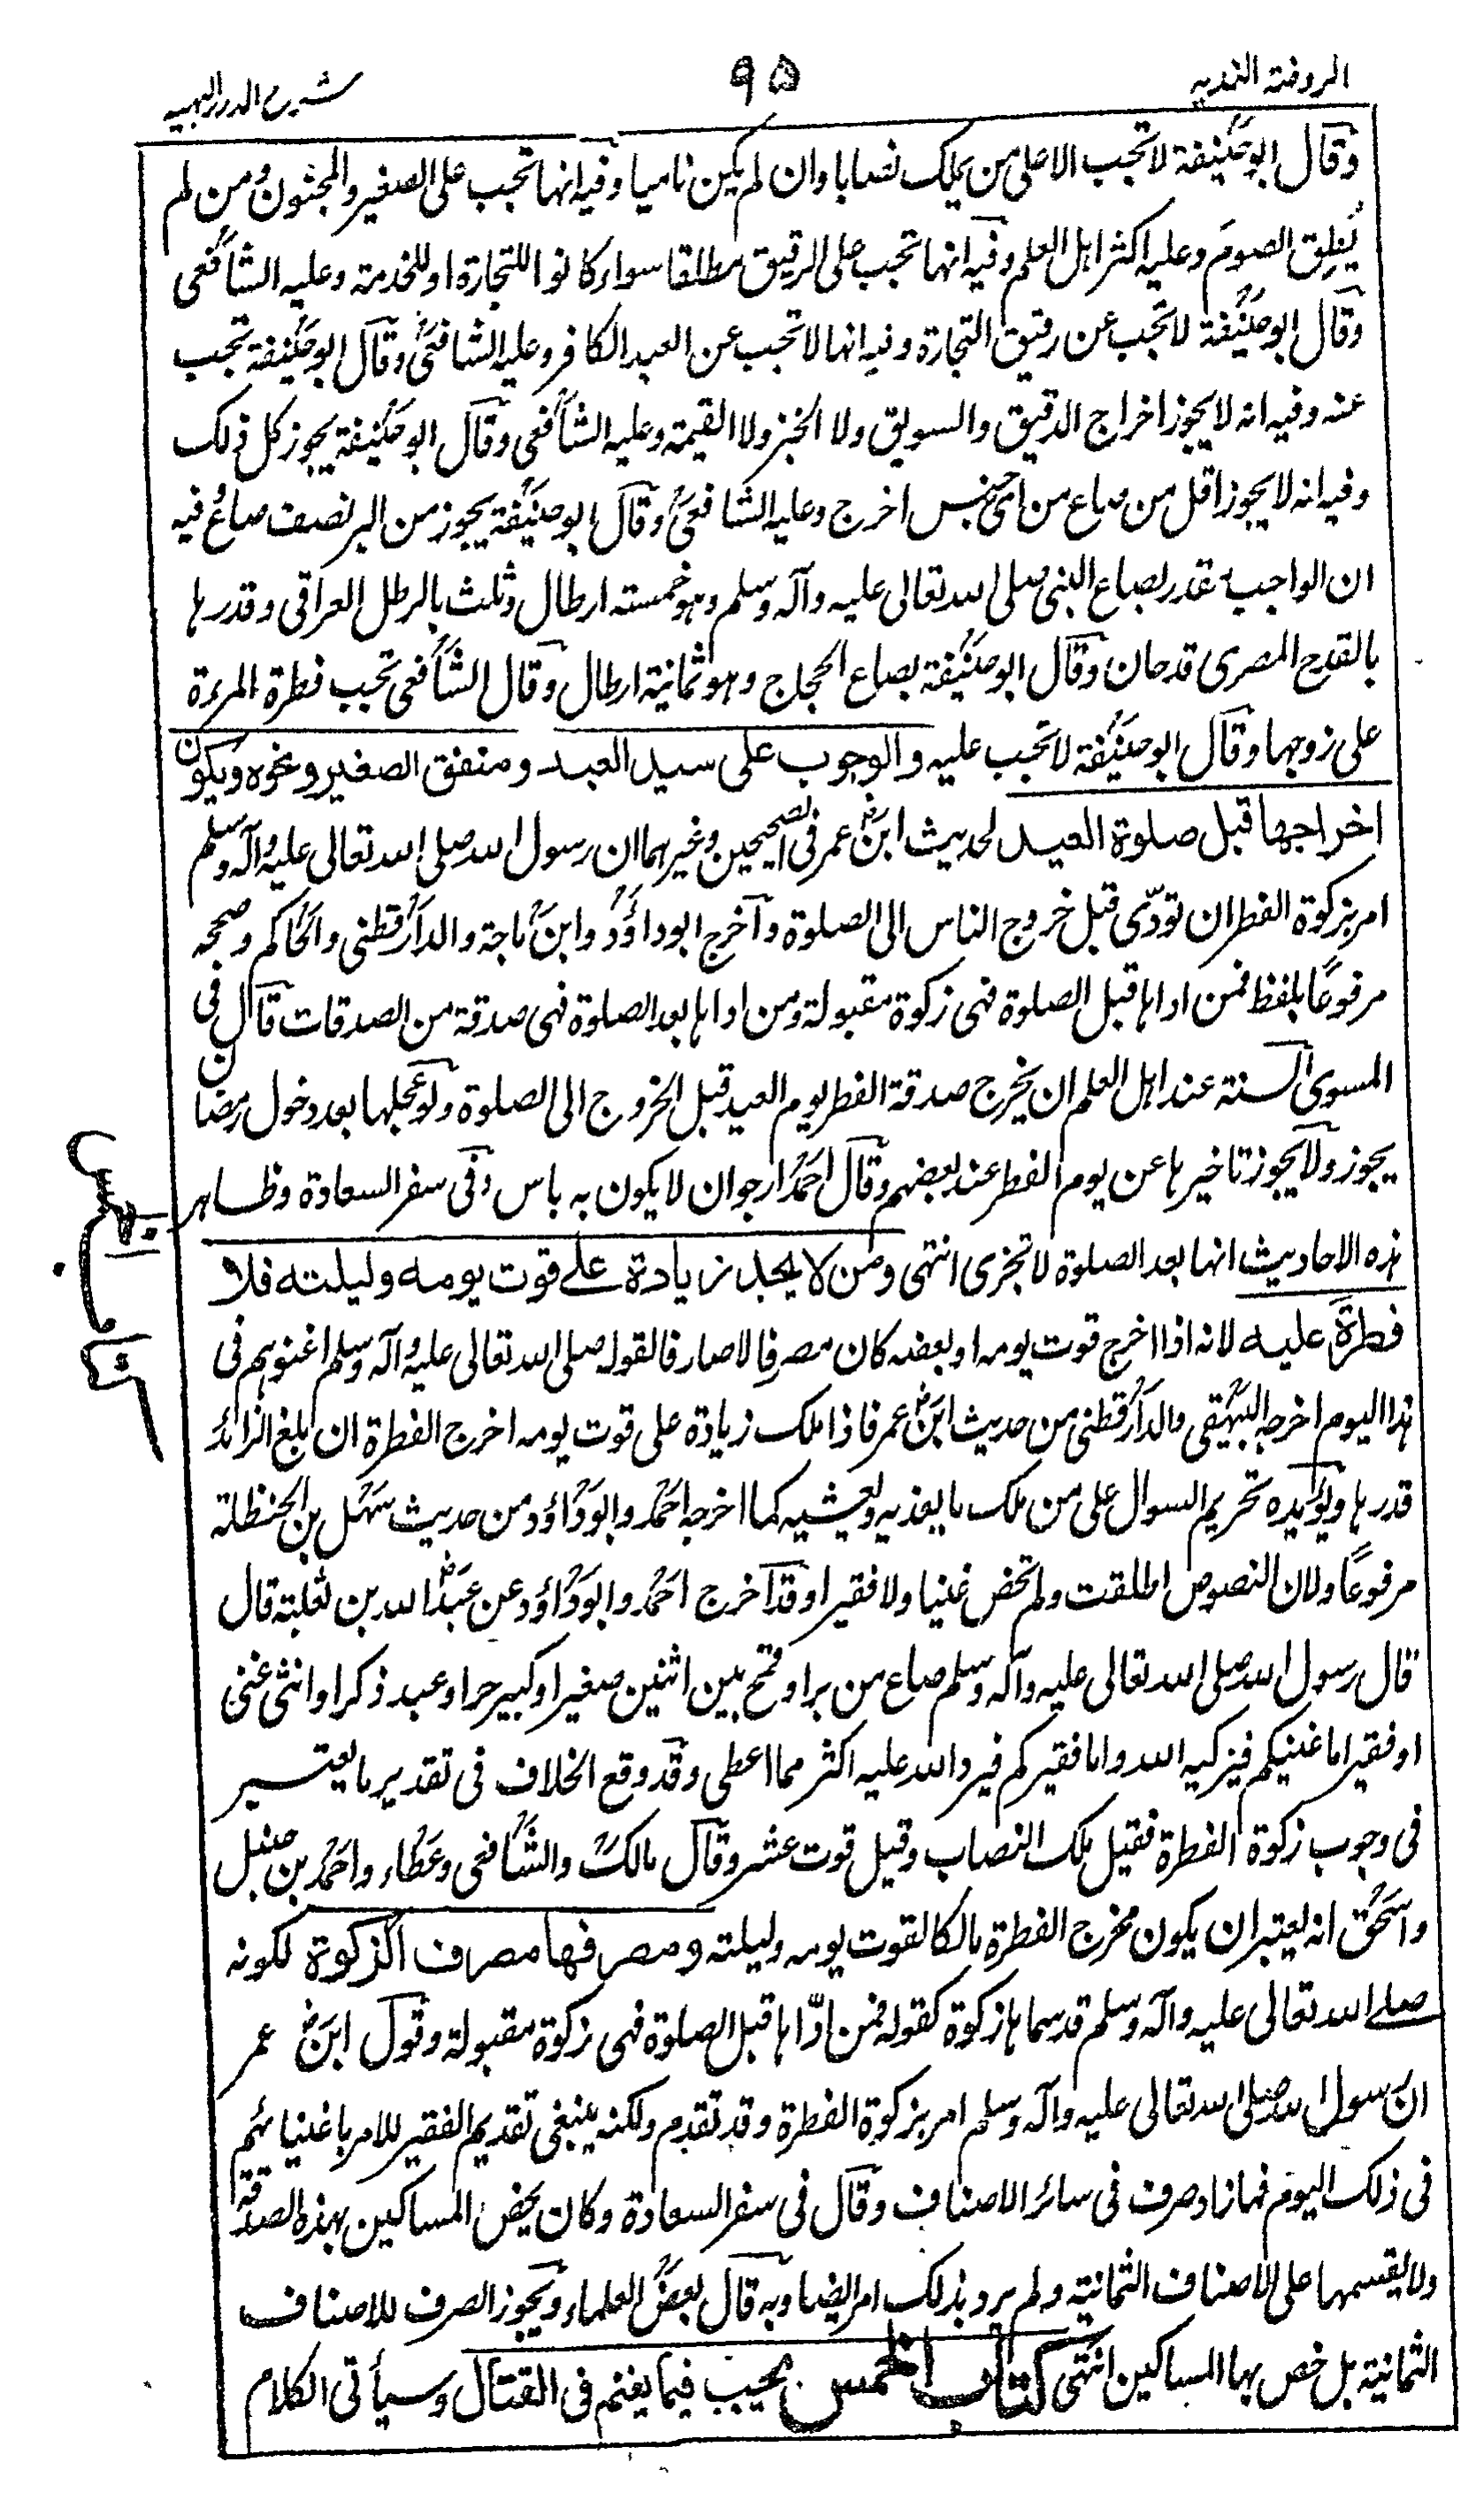 الروضة الندية
٩٥
شرح الدرر البهية
وقال ابو حنيفة لا تجب الا على من يملك نصابا وان لم يكن ناميا وفيه انها تجب على الصغير والمجنون ومن لم
يُطِق الصوم وعليه اكثر اهل العلم وفيه انها تجب على الرقيق مطلقا سواء كانوا للتجارة او للخدمة وعليه الشافعى
وقال ابو حنيفة لا تجب عن رقيق التجارة وفيه انها لا تجب عن العبد الكافر وعليه الشافعى وقال ابو حنيفة تجب
عنه وفيه انه لا يجوز اخراج الدقيق والسويق ولا الخبز ولا القيمة وعليه الشافعى وقال ابو حنيفة يجوز كل ذلك
وفيه انه لا يجوز اقل من صاع من اى جنس اخرج وعليه الشافعى وقال ابو حنيفة يجوز من البر نصف صاع وفيه
ان الواجب مقدر بصاع النبى صلى الله تعالى عليه وآله وسلم وهو خمسة ارطال وثلث بالرطل العراقى وقدرها
بالقدح المصرى قدحان وقال ابو حنيفة بصاع الحجاج وهو ثمانية ارطال وقال الشافعى تجب فطرة المرءة
على زوجها وقال ابو حنيفة لا تجب عليه والوجوب على سيد العبد ومنفق الصغير ونحوه ويكون
اخراجها قبل صلوة العيد لحديث ابن عمر فى الصحيحين وغيرهما ان رسول الله صلى الله تعالى عليه وآله وسلم
امر بزكوة الفطر ان تودّى قبل خروج الناس الى الصلوة وآخرج ابو داؤد وابن ماجة والدارقطنى والحاكم وصححه
مرفوعًا بلفظ فمن اداها قبل الصلوة فهى زكوة مقبولة ومن اداها بعد الصلوة فهى صدقة من الصدقات قال فى
المسوى السنة عند اهل العلم ان يخرج صدقة الفطر يوم العيد قبل الخروج الى الصلوة ولو عجلها بعد دخول رمضان
يجوز ولا يجوز تاخيرها عن يوم الفطر عند بعضهم وقال احمد ارجوان لا يكون به باس وفى سفر السعادة وظاهر
هذه الاحاديث انها بعد الصلوة لا تجزى انتهى ومن لا يجد زيادة على قوت يومه وليلته فلا
فطرة عليه لانه اذا اخرج قوت يومه او بعضه كان مصرفا لا صارفا لقوله صلى الله تعالى عليه وآله وسلم اغنوهم فى
هذا اليوم اخرجه البيهقى والدارقطنى من حديث ابن عمر فاذا ملك زيادة على قوت يومه اخرج الفطرة ان بلغ الزائد
قدرها ويؤيده تحريم السوال على من ملك ما يغذيه ويعشيه كما اخرجه احمد وابو داؤد من حديث سهل بن الحنظلة
مرفوعًا ولان النصوص اطلقت ولم تخص غنيا ولا فقيرا وقد آخرج احمد وابو داؤد عن عبد الله بن ثعلبة قال
قال رسول الله صلى الله تعالى عليه وآله وسلم صاع من بر او قمح بين اثنين صغير او كبير حر او عبد ذكر او انثى غنى
او فقير اما غنيكم فيزكيه الله واما فقيركم فيرد الله عليه اكثر مما اعطى وقد وقع الخلاف فى تقدير ما يعتبر
فى وجوب زكوة الفطرة فقيل ملك النصاب وقيل قوت عشر وقال مالك والشافعى وعطاء واحمد بن حنبل
واسحق انه يعتبر ان يكون مخرج الفطرة مالكا لقوت يومه وليلته ومصرفها مصرف الزكوة لكونه
صلى الله تعالى عليه وآله وسلم قد سماها زكوة كقوله فمن ادّاها قبل الصلوة فهى زكوة مقبولة وقول ابن عمر
ان رسول الله صلى الله تعالى عليه وآله وسلم امر بزكوة الفطرة وقد تقدم ولكنه ينبغى تقديم الفقير للامر باغنيائهم
فى ذلك اليوم فما زاد صرف فى سائر الاصناف وقال فى سفر السعادة وكان يخص المساكين بهذه الصدقة
ولا يقسمها على الاصناف الثمانية ولم يرد بذلك امر ايضا وبه قال بعض العلماء ويجوز الصرف للاصناف
الثمانية بل خص بها المساكين انتهى كتاب الخمس يجب فيما يغنم فى القتال وسيأتى الكلام